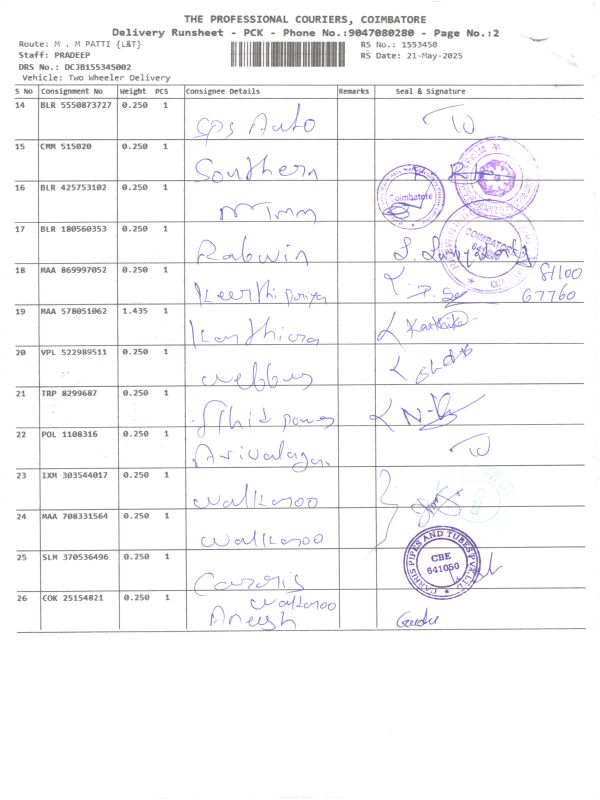 THE PROFESSIONAL COURIERS, COIMBATORE
Delivery Runsheet - PCK - Phone No.:9047080280 - Page No.:2
Route: M . M PATTI {L&T} RS No.: 1553450
Staff: PRADEEP RS Date: 21-May-2025
DRS No.: DCJB155345002
Vehicle: Two Wheeler Delivery
S No Consignment No Weight PCS Consignee Details Remarks Seal & Signature
14 BLR 5550873727 0.250 1 Gps Auto
15 CMM 515020 0.250 1 Southern
16 BLR 425753102 0.250 1 Coimbatore
17 BLR 180560353 0.250 1 Rabwin COIMBATORE
18 MAA 869997052 0.250 1 Keerthi Puniya 81100
67760
19 MAA 578051062 1.435 1 Karthicra Karthika
20 VPL 522989511 0.250 1 webbus
21 TRP 8299687 0.250 1 power
22 POL 1108316 0.250 1 Arivalagan
23 IXM 303544017 0.250 1 walkaroo
24 MAA 708331564 0.250 1 walkaroo
25 SLM 370536496 0.250 1 Cararis CARRIS PIPES AND TUBES PVT. LTD. CBE 641050
walkaroo
26 COK 25154821 0.250 1 Aneesh